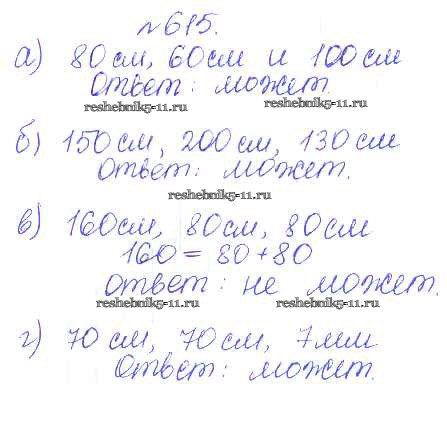 №615.
а) 80 см, 60 см и 100 см
Ответ: может.
reshebnik5-11.ru reshebnik5-11.ru
б) 150 см, 200 см, 130 см
Ответ: может.
reshebnik5-11.ru
в) 160 см, 80 см, 80 см
160 = 80 + 80
Ответ: не может.
reshebnik5-11.ru reshebnik5-11.ru
г) 70 см, 70 см, 7 мм
Ответ: может.